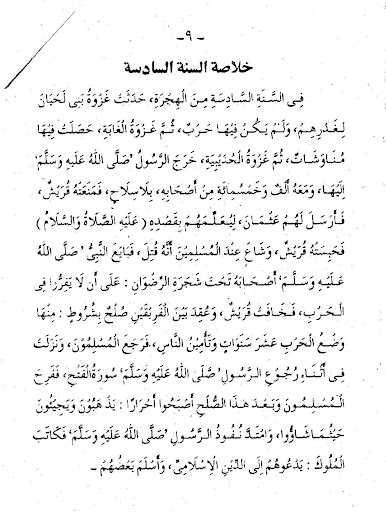 - ٩ -
خلاصة السنة السادسة
فِى السَّنَةِ السَّادِسَةِ مِنَ الْهِجْرَةِ، حَدَثَتْ غَزْوَةُ بَنِى لَحْيَانَ
لِغَدْرِهِمْ، وَلَمْ يَكُنْ فِيْهَا حَرْبٌ، ثُمَّ غَزْوَةُ الْغَابَةِ، حَصَلَتْ فِيْهَا
مُنَاوَشَاتٌ، ثُمَّ غَزْوَةُ الْحُدَيْبِيَةِ، خَرَجَ الرَّسُولُ ’صَلَّى اللهُ عَلَيهِ وَسَلَّمَ‘
إِلَيْهَا، وَمَعَهُ أَلْفٌ وَخَمْسُمِائَةٍ مِنْ أَصْحَابِهِ، بِلَا سِلَاحٍ، فَمَنَعَتْهُ قُرَيْشٌ،
فَأَرْسَلَ لَهُمْ عُثْمَانَ، لِيُعَلِّمَهُمْ بِقَصْدِهِ ( عَلَيْهِ الصَّلَاةُ وَالسَّلَامُ )
فَحَبَسَتْهُ قُرَيْشٌ، وَشَاعَ عِنْدَ الْمُسْلِمِيْنَ أَنَّهُ قُتِلَ، فَبَايَعَ النَّبِىُّ ’صَلَّى اللهُ
عَلَيْهِ وَسَلَّمَ‘ أَصْحَابَهُ تَحْتَ شَجَرَةِ الرِّضْوَانِ : عَلَى أَن لَا يَفِرُّوا فِى
الْحَرْبِ، فَخَافَتْ قُرَيْشٌ، وَعُقِدَ بَيْنَ الْفَرِيْقَيْنِ صُلْحٌ بِشُرُوطٍ : مِنْهَا
وَضْعُ الْحَرْبِ عَشَرَ سَنَوَاتٍ وَتَأْمِيْنُ النَّاسِ، فَرَجَعَ الْمُسْلِمُوْنَ، وَنَزَلَتْ
فِى أَثْنَاءِ رُجُوْعِ الرَّسُوْلِ ’صَلَّى اللهُ عَلَيْهِ وَسَلَّمَ‘ سُورَةُ الْفَتْحِ، فَفَرِحَ
الْمُسْلِمُونَ وَبَعْدَ هٰذَا الصُّلْحِ أَصْبَحُوا أَحْرَارًا : يَذْهَبُوْنَ وَيَجِيْئُونَ
حَيْثُمَا شَاؤُوا، وَامْتَدَّ نُفُوذُ الرَّسُوْلِ ’صَلَّى اللهُ عَلَيْهِ وَسَلَّمَ‘ فَكَاتَبَ
الْمُلُوكَ : يَدْعُوهُمْ إِلَى الدِّيْنِ الْإِسْلَامِىِّ، وَأَسْلَمَ بَعْضُهُمْ -